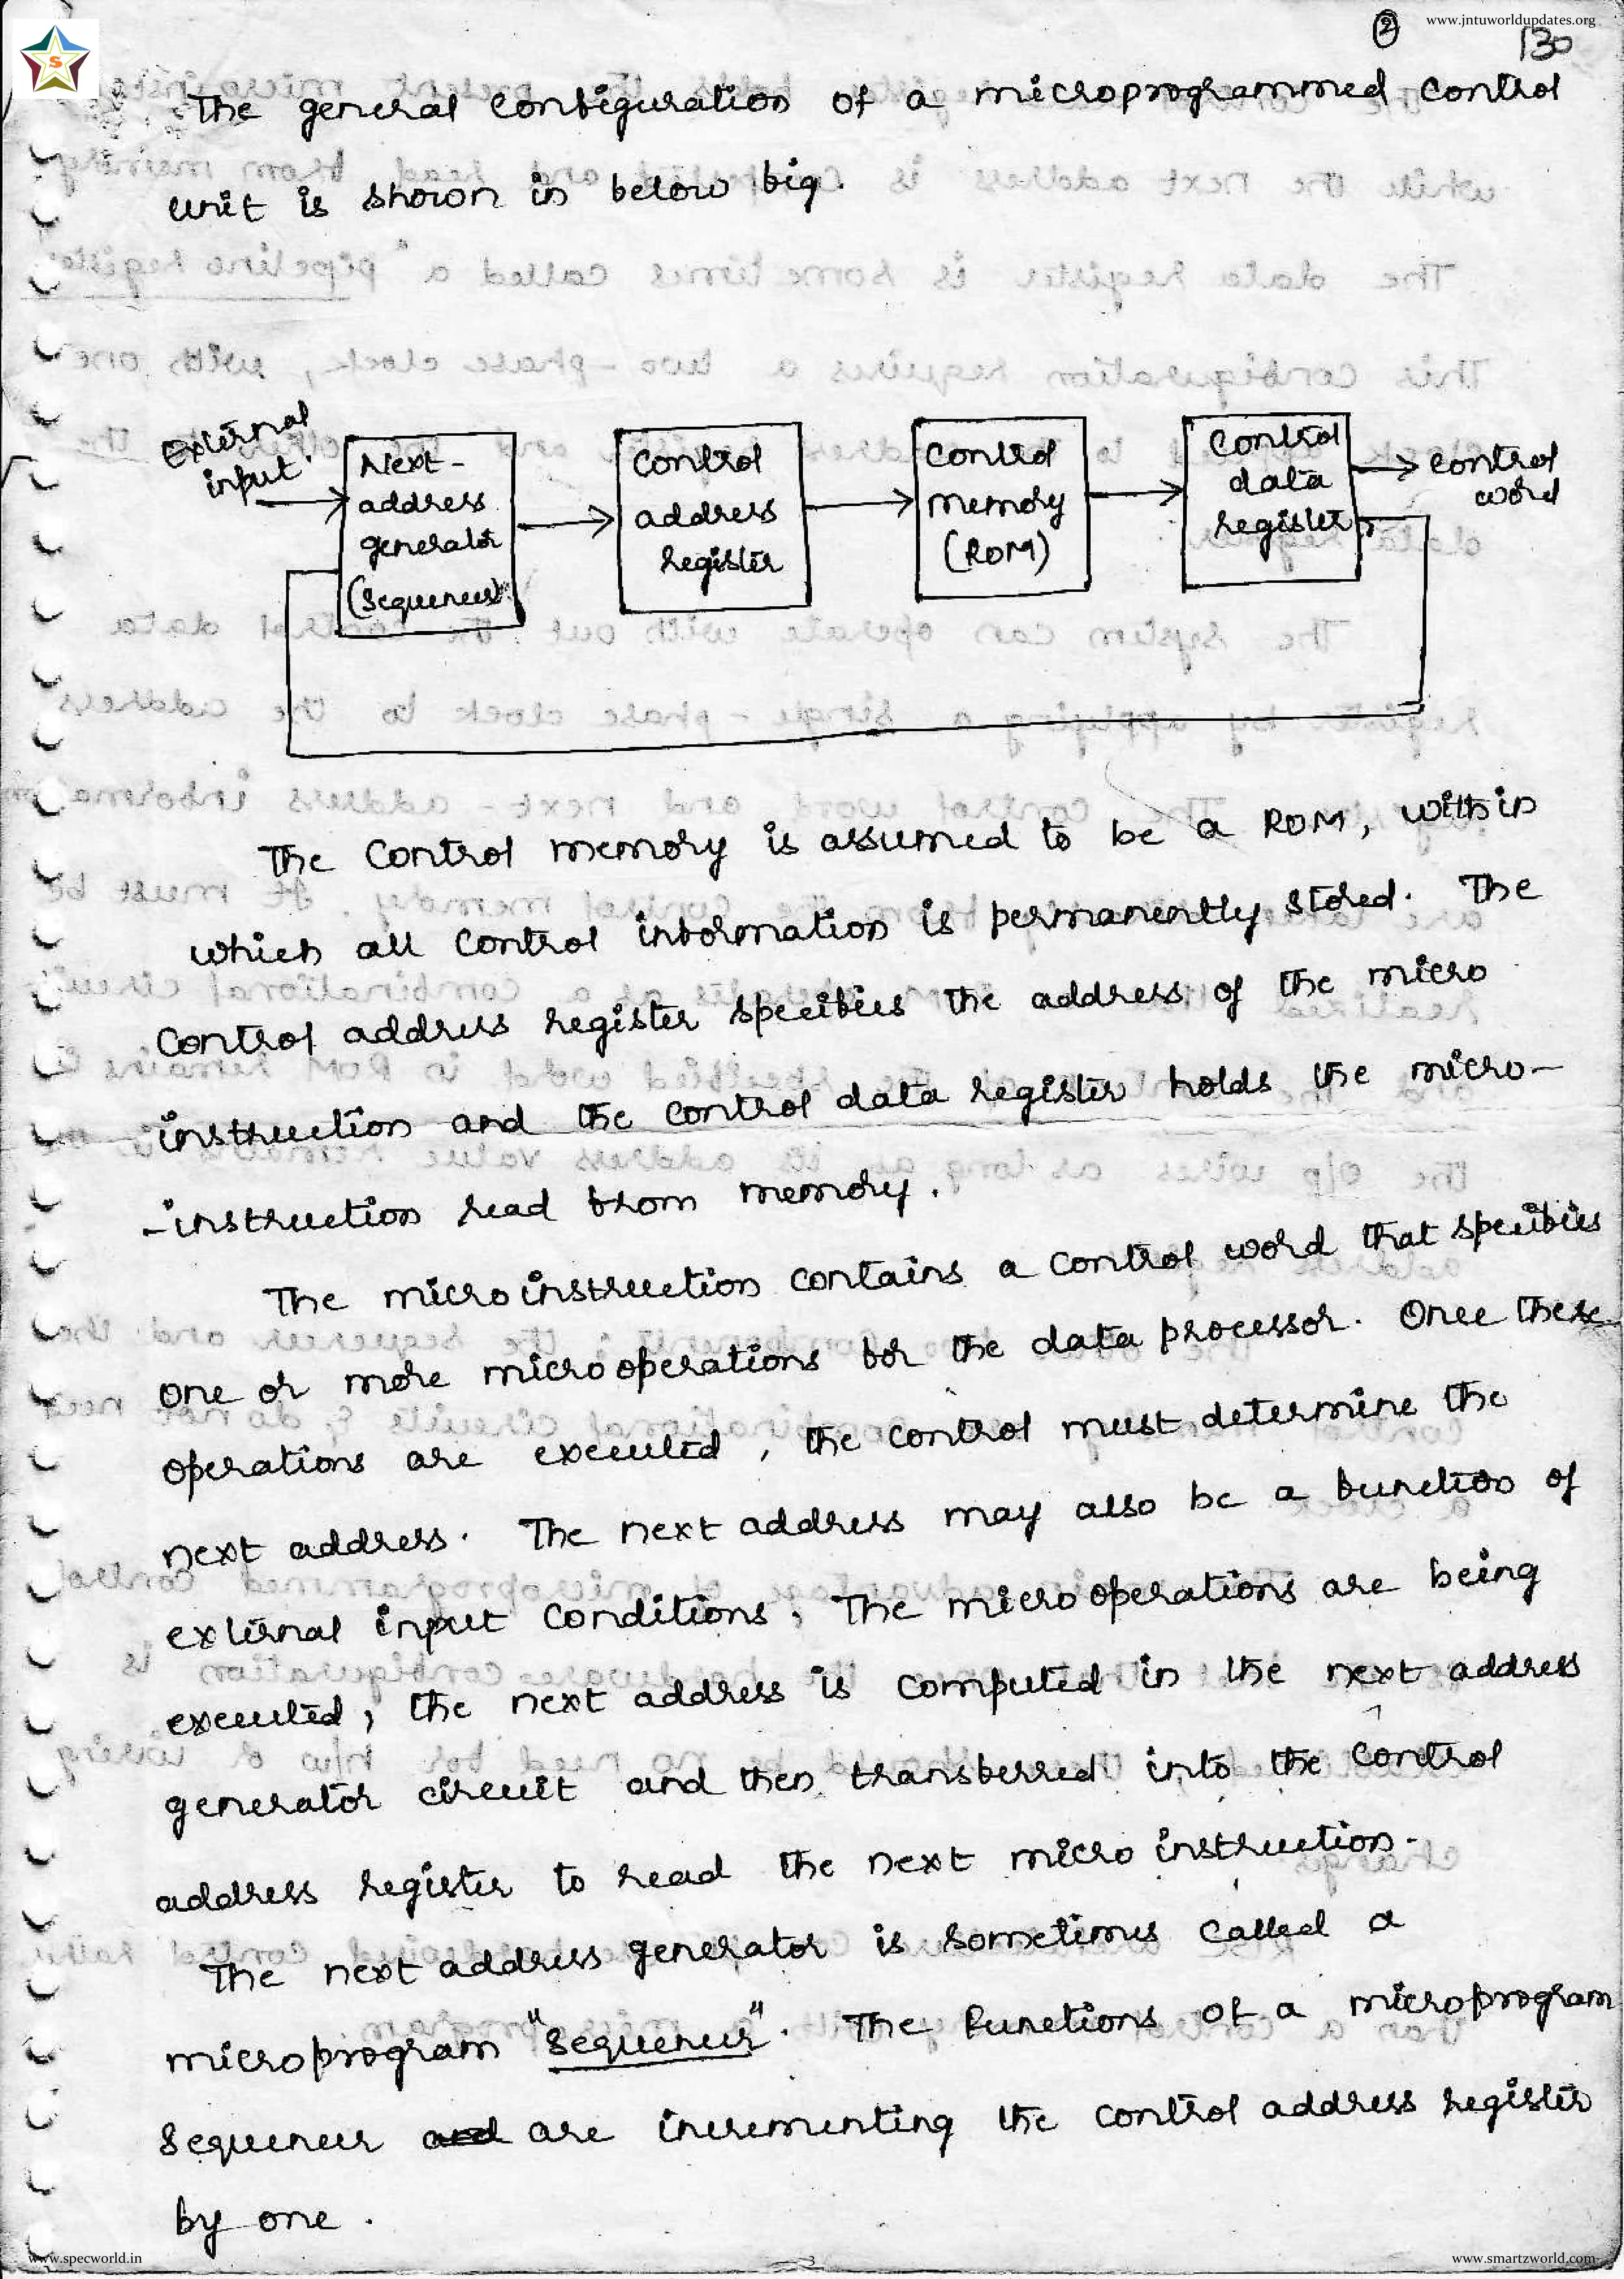 www.jntuworldupdates.org
2
130
The general configuration of a microprogrammed control
unit is shown in below fig.
External
input
Next-
address
generator
(sequencer)
Control
address
register
Control
memory
(ROM)
Control
data
register
control
word
The control memory is assumed to be a ROM, within
which all control information is permanently stored. The
control address register specifies the address of the micro
instruction and the control data register holds the micro-
-instruction read from memory.
The microinstruction contains a control word that specifies
one or more microoperations for the data processor. Once these
operations are executed, the control must determine the
next address. The next address may also be a function of
external input conditions. The microoperations are being
executed, the next address is computed in the next address
generator circuit and then transferred into the control
address register to read the next micro instruction.
The next address generator is sometimes called a
microprogram "sequencer". The functions of a microprogram
sequencer and are incrementing the control address register
by one.
www.specworld.in
3
www.smartzworld.com